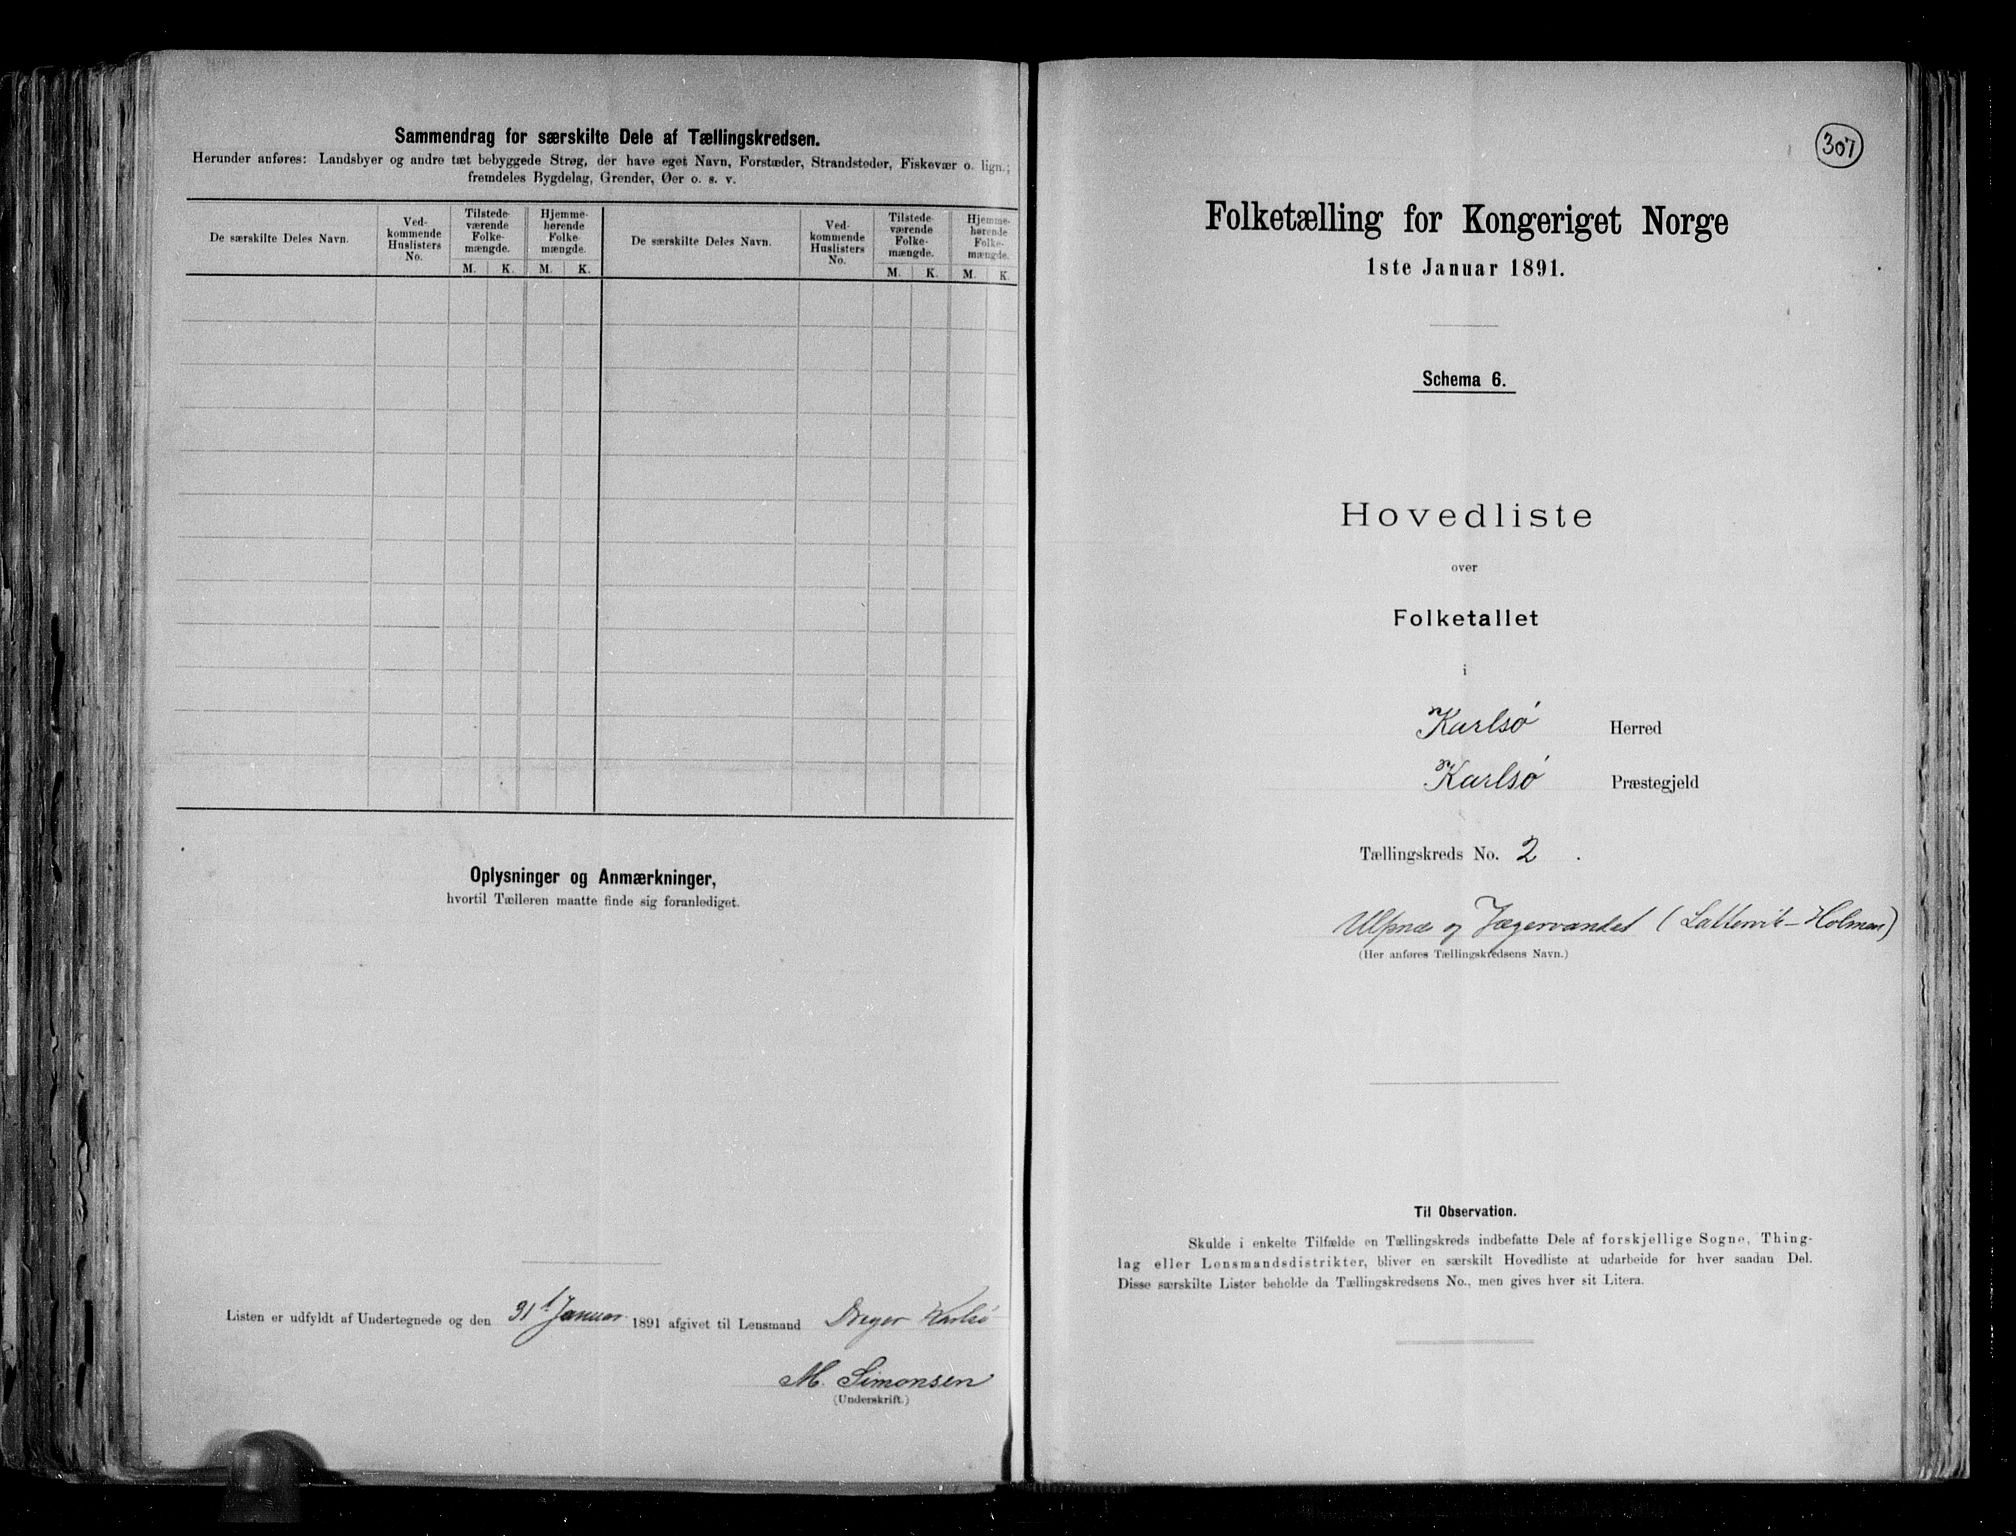 Sammendrag for særskilte Dele af Tællingskredsen.
Herunder anføres: Landsbyer og andre tæt bebyggede Strøg, der have eget Navn, Forstæder, Strandsteder, Fiskevær o. lign.;
fremdeles Bygdelag, Grender, Øer o. s. v.
De særskilte Deles Navn.
Ved-
kommende
Huslisters
No.
Tilstede-
værende
Folke-
mængde.
M. K.
Hjemme-
hørende
Folke-
mængde.
M. K.
De særskilte Deles Navn.
Ved-
kommende
Huslisters
No.
Tilstede-
værende
Folke-
mængde.
M. K.
Hjemme-
hørende
Folke-
mængde.
M. K.
Oplysninger og Anmærkninger,
hvortil Tælleren maatte finde sig foranlediget.
Listen er udfyldt af Undertegnede og den 31 Januar 1891 afgivet til Lensmand Dreyer Karlsö
M. Simonsen
(Underskrift.)
307
Folketælling for Kongeriget Norge
1ste Januar 1891.
Schema 6.
Hovedliste
over
Folketallet
i
Karlsö Herred
Karlsö Præstegjeld
Tællingskreds No. 2.
Ulfsnæs og Jægervandet (Lattervik-Holmen)
(Her anføres Tællingskredsens Navn.)
Til Observation.
Skulde i enkelte Tilfælde en Tællingskreds indbefatte Dele af forskjellige Sogne, Thing-
lag eller Lensmandsdistrikter, bliver en særskilt Hovedliste at udarbeide for hver saadan Del.
Disse særskilte Lister beholde da Tællingskredsens No., men gives hver sit Litera.